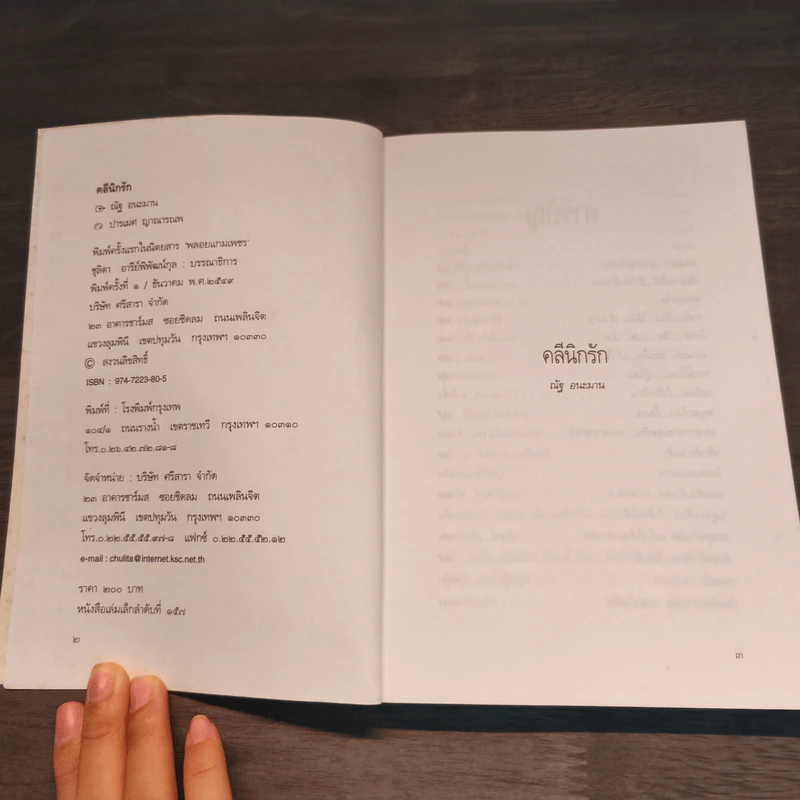 คลีนิกรัก
ณัฐ อนะมาน
ปารเมศ ญาณารณพ
พิมพ์ครั้งแรกในนิตยสาร 'พลอยแกมเพชร'
ชุลิตา อารีย์พิพัฒน์กุล : บรรณาธิการ
พิมพ์ครั้งที่ ๑ / ธันวาคม พ.ศ.๒๕๔๙
บริษัท ศรีสารา จำกัด
๒๓ อาคารชาร์มส ซอยชิดลม ถนนเพลินจิต
แขวงลุมพินี เขตปทุมวัน กรุงเทพฯ ๑๐๓๓๐
© สงวนลิขสิทธิ์
ISBN : 974-7223-80-5
พิมพ์ที่ : โรงพิมพ์กรุงเทพ
๑๐๔/๑ ถนนรางน้ำ เขตราชเทวี กรุงเทพฯ ๑๐๓๑๐
โทร.๐.๒๖.๔๒.๗๒.๘๑-๘
จัดจำหน่าย : บริษัท ศรีสารา จำกัด
๒๓ อาคารชาร์มส ซอยชิดลม ถนนเพลินจิต
แขวงลุมพินี เขตปทุมวัน กรุงเทพฯ ๑๐๓๓๐
โทร.๐.๒๒.๕๕.๕๕.๙๗-๘ แฟกซ์ ๐.๒๒.๕๕.๕๒.๑๒
e-mail : chulita@internet.ksc.net.th
ราคา ๒๐๐ บาท
หนังสือเล่มเล็กลำดับที่ ๑๕๗
๒
คลีนิกรัก
ณัฐ อนะมาน
๓